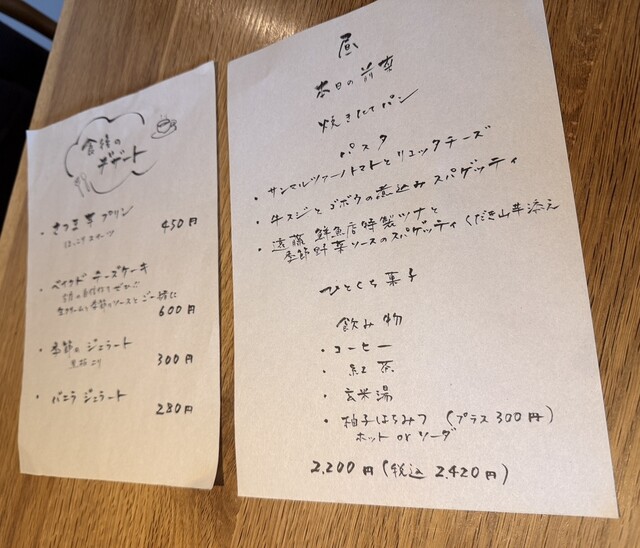 食後の
デザート
・さつま芋プリン 450円
ほっこりスイーツ
・ベイクドチーズケーキ
生クリームと季節のソースとご一緒に
600円
・季節のジェラート 300円
・バニラジェラート 280円
昼
本日の前菜
焼きたてパン
パスタ
・サンマルツァーノトマトとリコッタチーズ
・牛スジとゴボウの煮込みスパゲッティ
・遠藤鮮魚店特製ツナと
季節野菜ソースのスパゲッティ くだき山芋添え
ひとくち菓子
飲み物
・コーヒー
・紅茶
・玄米湯
・柚子はちみつ (プラス300円)
ホット or ソーダ
2,200円(税込 2,420円)